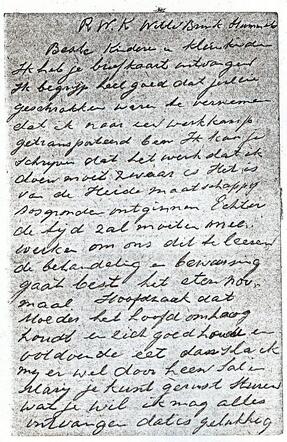 R.W.K. Witte Brink Hummelo
Beste Kinderen en Kleinkinderen
Ik heb je briefkaart ontvangen
Ik begrijp heel goed dat jullie
geschrokken waren te vernemen
dat ik naar een werkkamp
getransporteerd ben Ik kan je
schrijven dat het werk dat ik
doen moet zwaar is Het is
van de Heide maatschappij
bosgronden ontginnen Echter
de tijd zal moeten mee
werken om ons dit te leeren
de behandeling en bewassing
gaat best het eten nor-
maal Hoofdzaak dat
Moeder het hoofd omhoog
houdt en zich goed houdt en
voldoende eet dan sla ik
mij er wel door heen
Mary je kunt gerust sturen
wat je wil ik mag alles
ontvangen dat is gelukkig